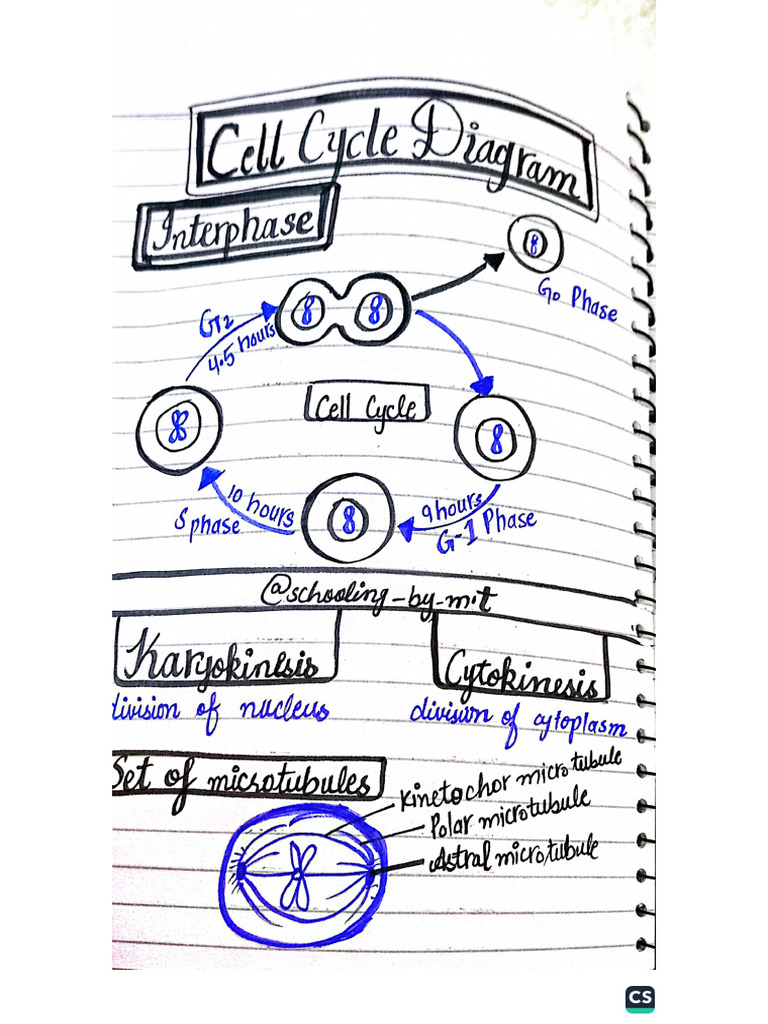 Cell Cycle Diagram
Interphase
G0 Phase
G2
4.5 hours
Cell Cycle
10 hours
S phase
9 hours
G-1 Phase
@schooling-by-m.t
Karyokinesis
Cytokinesis
division of nucleus
division of cytoplasm
Set of microtubules
Kinetochor microtubule
Polar microtubule
Astral microtubule
CS